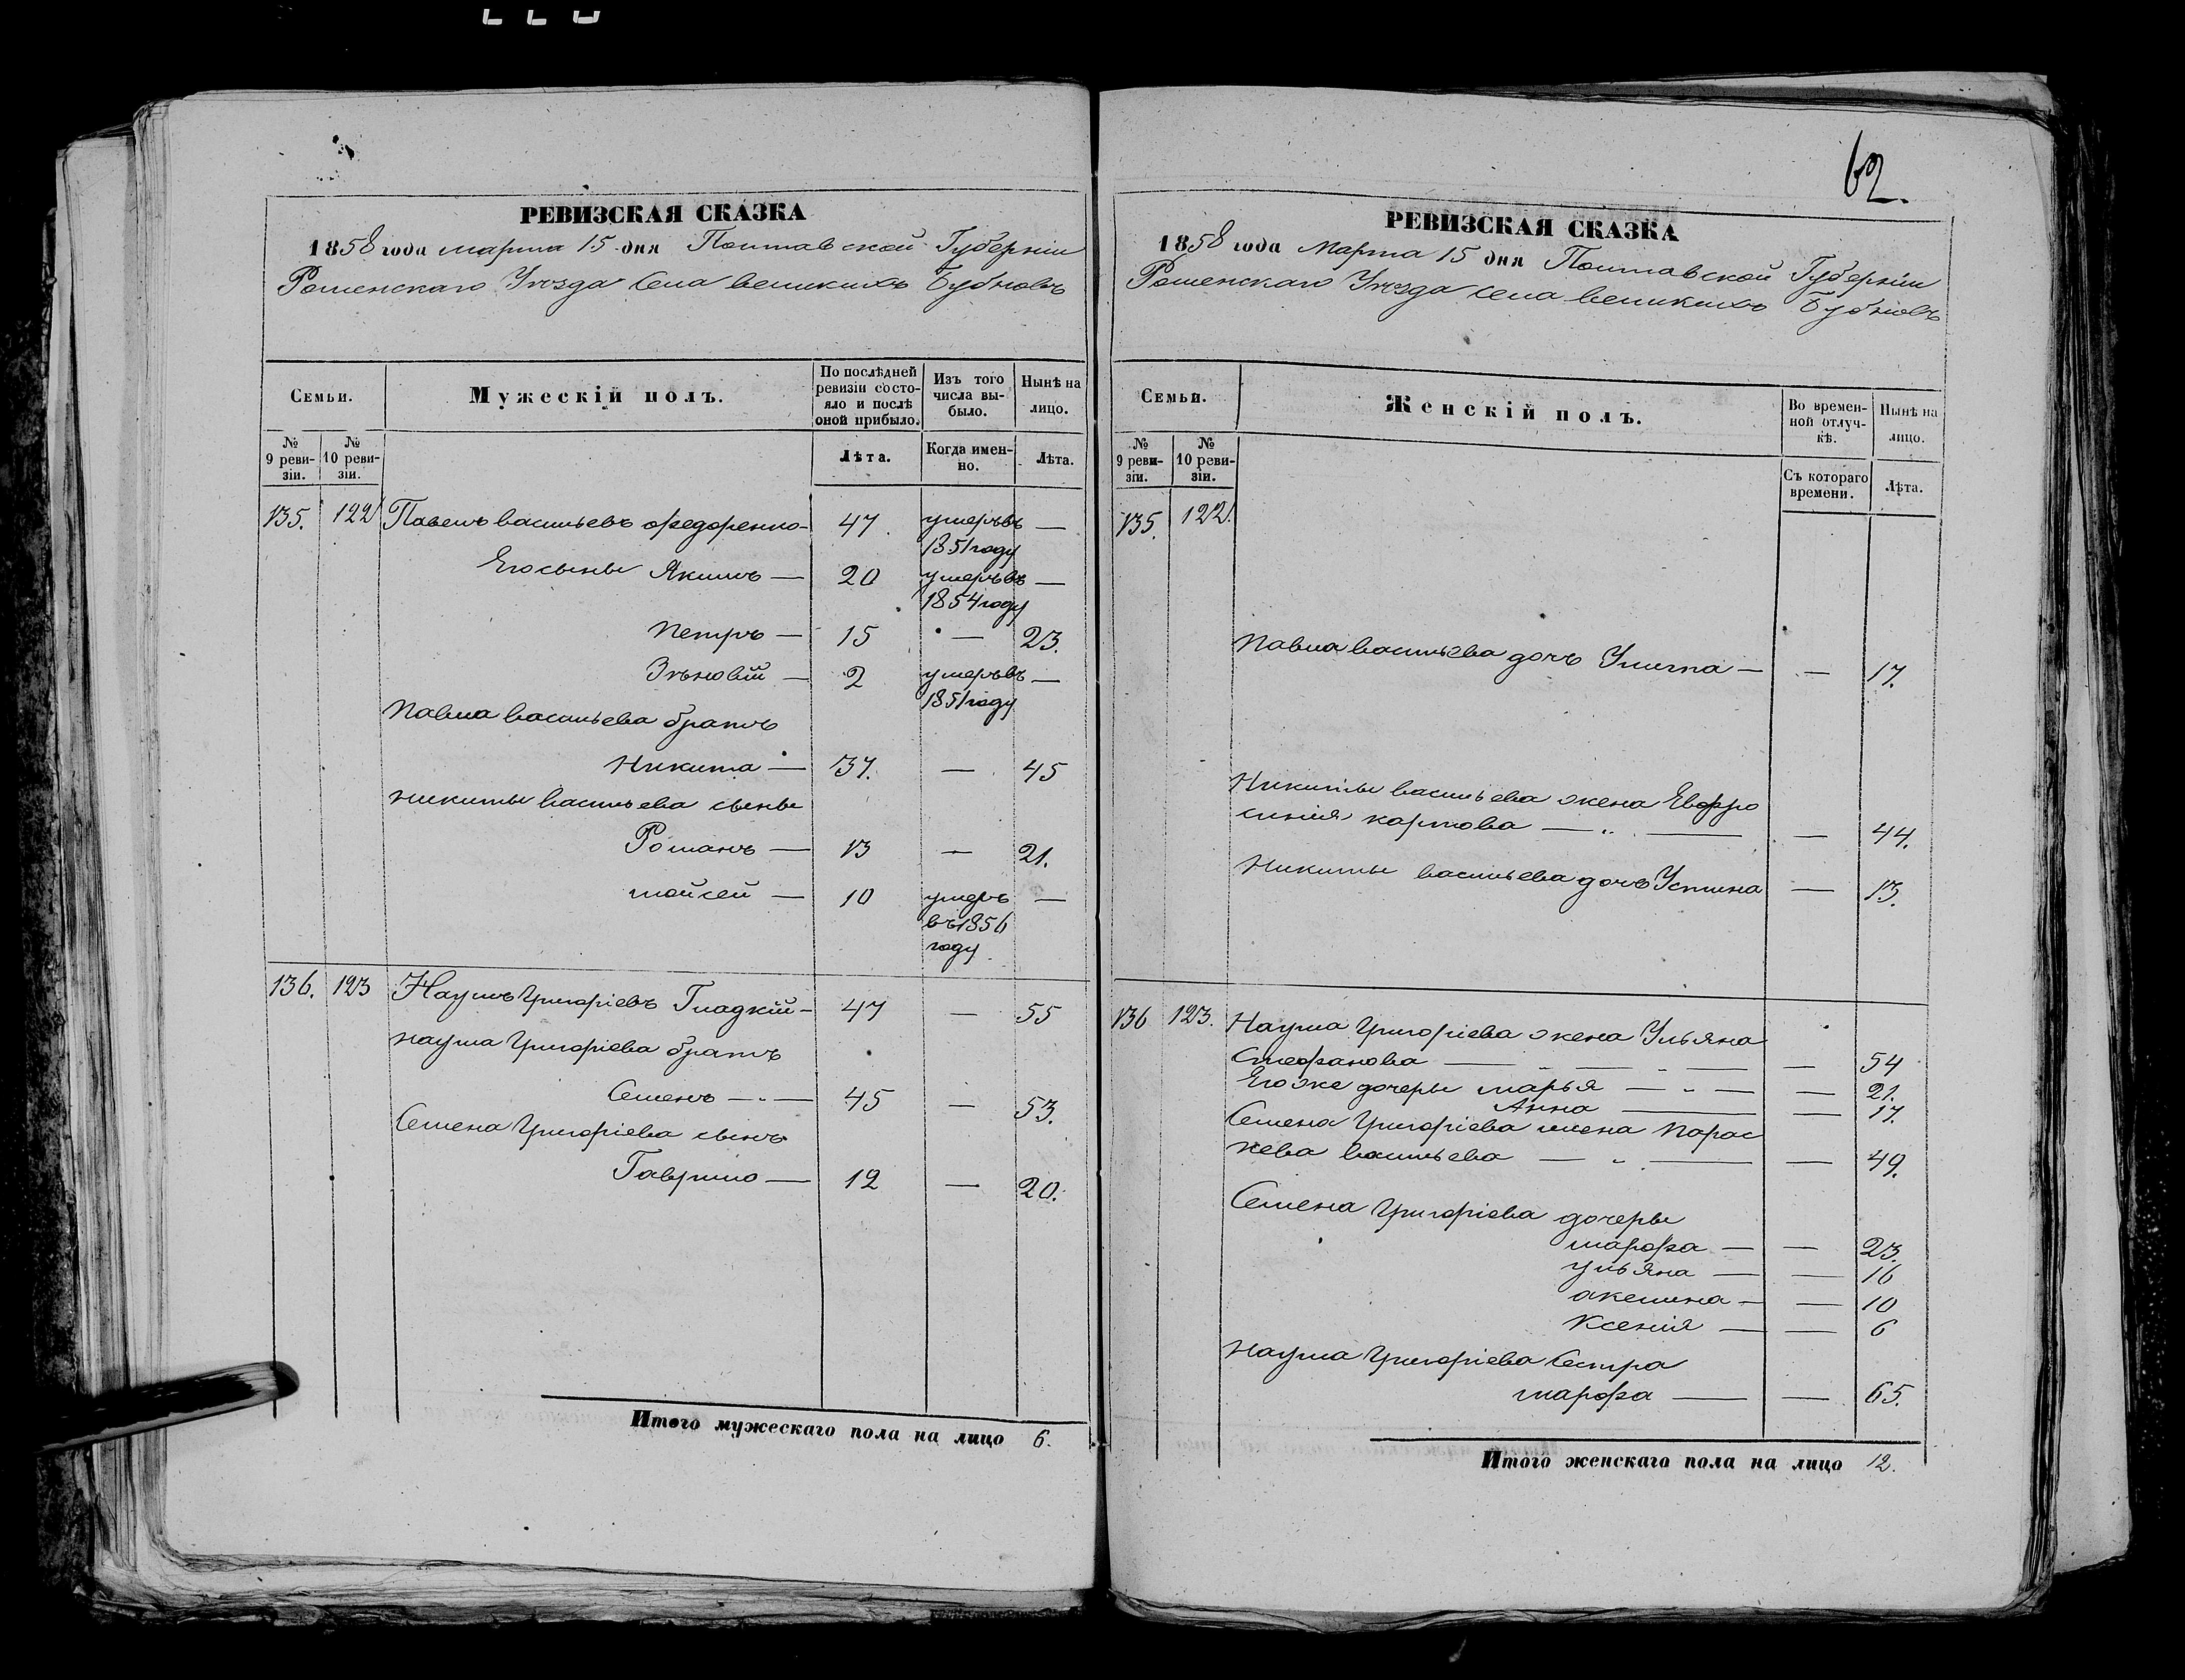 62.
РЕВИЗСКАЯ СКАЗКА
1858 года марта 15 дня Полтавской Губерніи
Роменскаго Уѣзда Села великихъ Бубновъ
Семьи.
Мужескій полъ.
По послѣдней ревизіи состояло и послѣ оной прибыло.
Изъ того числа выбыло.
Нынѣ на лицо.
№ 9 ревизіи.
№ 10 ревизіи.
Лѣта.
Когда именно.
Лѣта.
135. 122 Павелъ васильевъ Федоренко — 47 умеръ въ 1851 году —
Его сыны Якимъ — 20 умеръ въ 1854 году —
Петръ — 15 — 23.
Зѣновій — 2 умеръ въ 1851 году —
Павла васильева братъ
Никита — 37. — 45
Никиты васильева сыны
Романъ — 13 — 21.
Мойсей — 10 умеръ въ 1856 году —
136. 123 Наумъ Григоріевъ Гладкій — 47 — 55
Наума Григоріева братъ
Семенъ — 45 — 53.
Семена Григоріева сынъ
Гаврило — 12 — 20.
Итого мужескаго пола на лицо 6.
РЕВИЗСКАЯ СКАЗКА
1858 года Марта 15 дня Полтавской Губерніи
Роменскаго Уѣзда села великихъ Бубновъ
Семьи.
Женскій полъ.
Во временной отлучкѣ.
Нынѣ на лицо.
№ 9 ревизіи.
№ 10 ревизіи.
Съ котораго времени.
Лѣта.
135. 122.
Павла васильева дочъ Улита — — 17.
Никиты васильева жена Евфро
синія карпова — — 44.
Никиты васильева дочъ Устина — 13.
136 123. Наума Григоріева жена Ульяна
Стефанова — — 54
Его же дочеры марья — — 21.
Анна — — 17.
Семена Григоріева жена Парас
кева васильева — — 49.
Семена Григоріева дочеры
марфа — — 23.
ульяна — — 16
акелина — — 10
Ксенія — — 6
Наума Григоріева Сестра
марфа — — 65.
Итого женскаго пола на лицо 12.